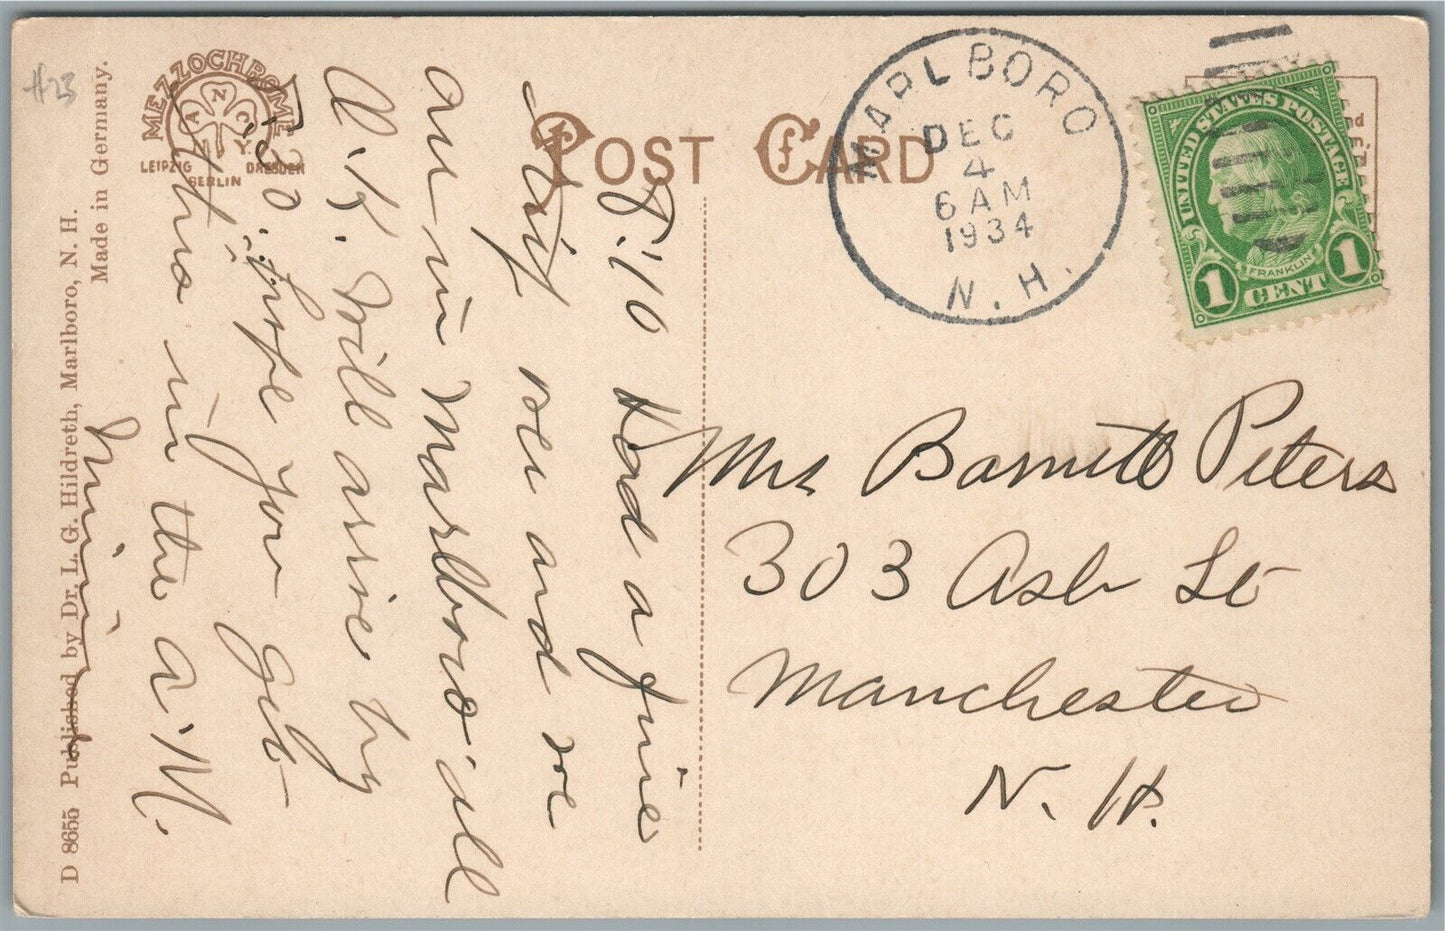 #23
MEZZOCHROME
A N C
N.Y.
LEIPZIG DRESDEN
BERLIN
POST CARD
MARLBORO
DEC
4
6 AM
1934
N. H.
UNITED STATES POSTAGE
FRANKLIN
1 CENT 1
8.10 Had a fine
trip over and we
are in Marlboro all
O.K. Will arrive by
7:30. Hope you get
this in the a.M.
Mrs Barnett Peters
303 Ash St
Manchester
N. H.
D 8655 Published by Dr. L. G. Hildreth, Marlboro, N. H.
Made in Germany.